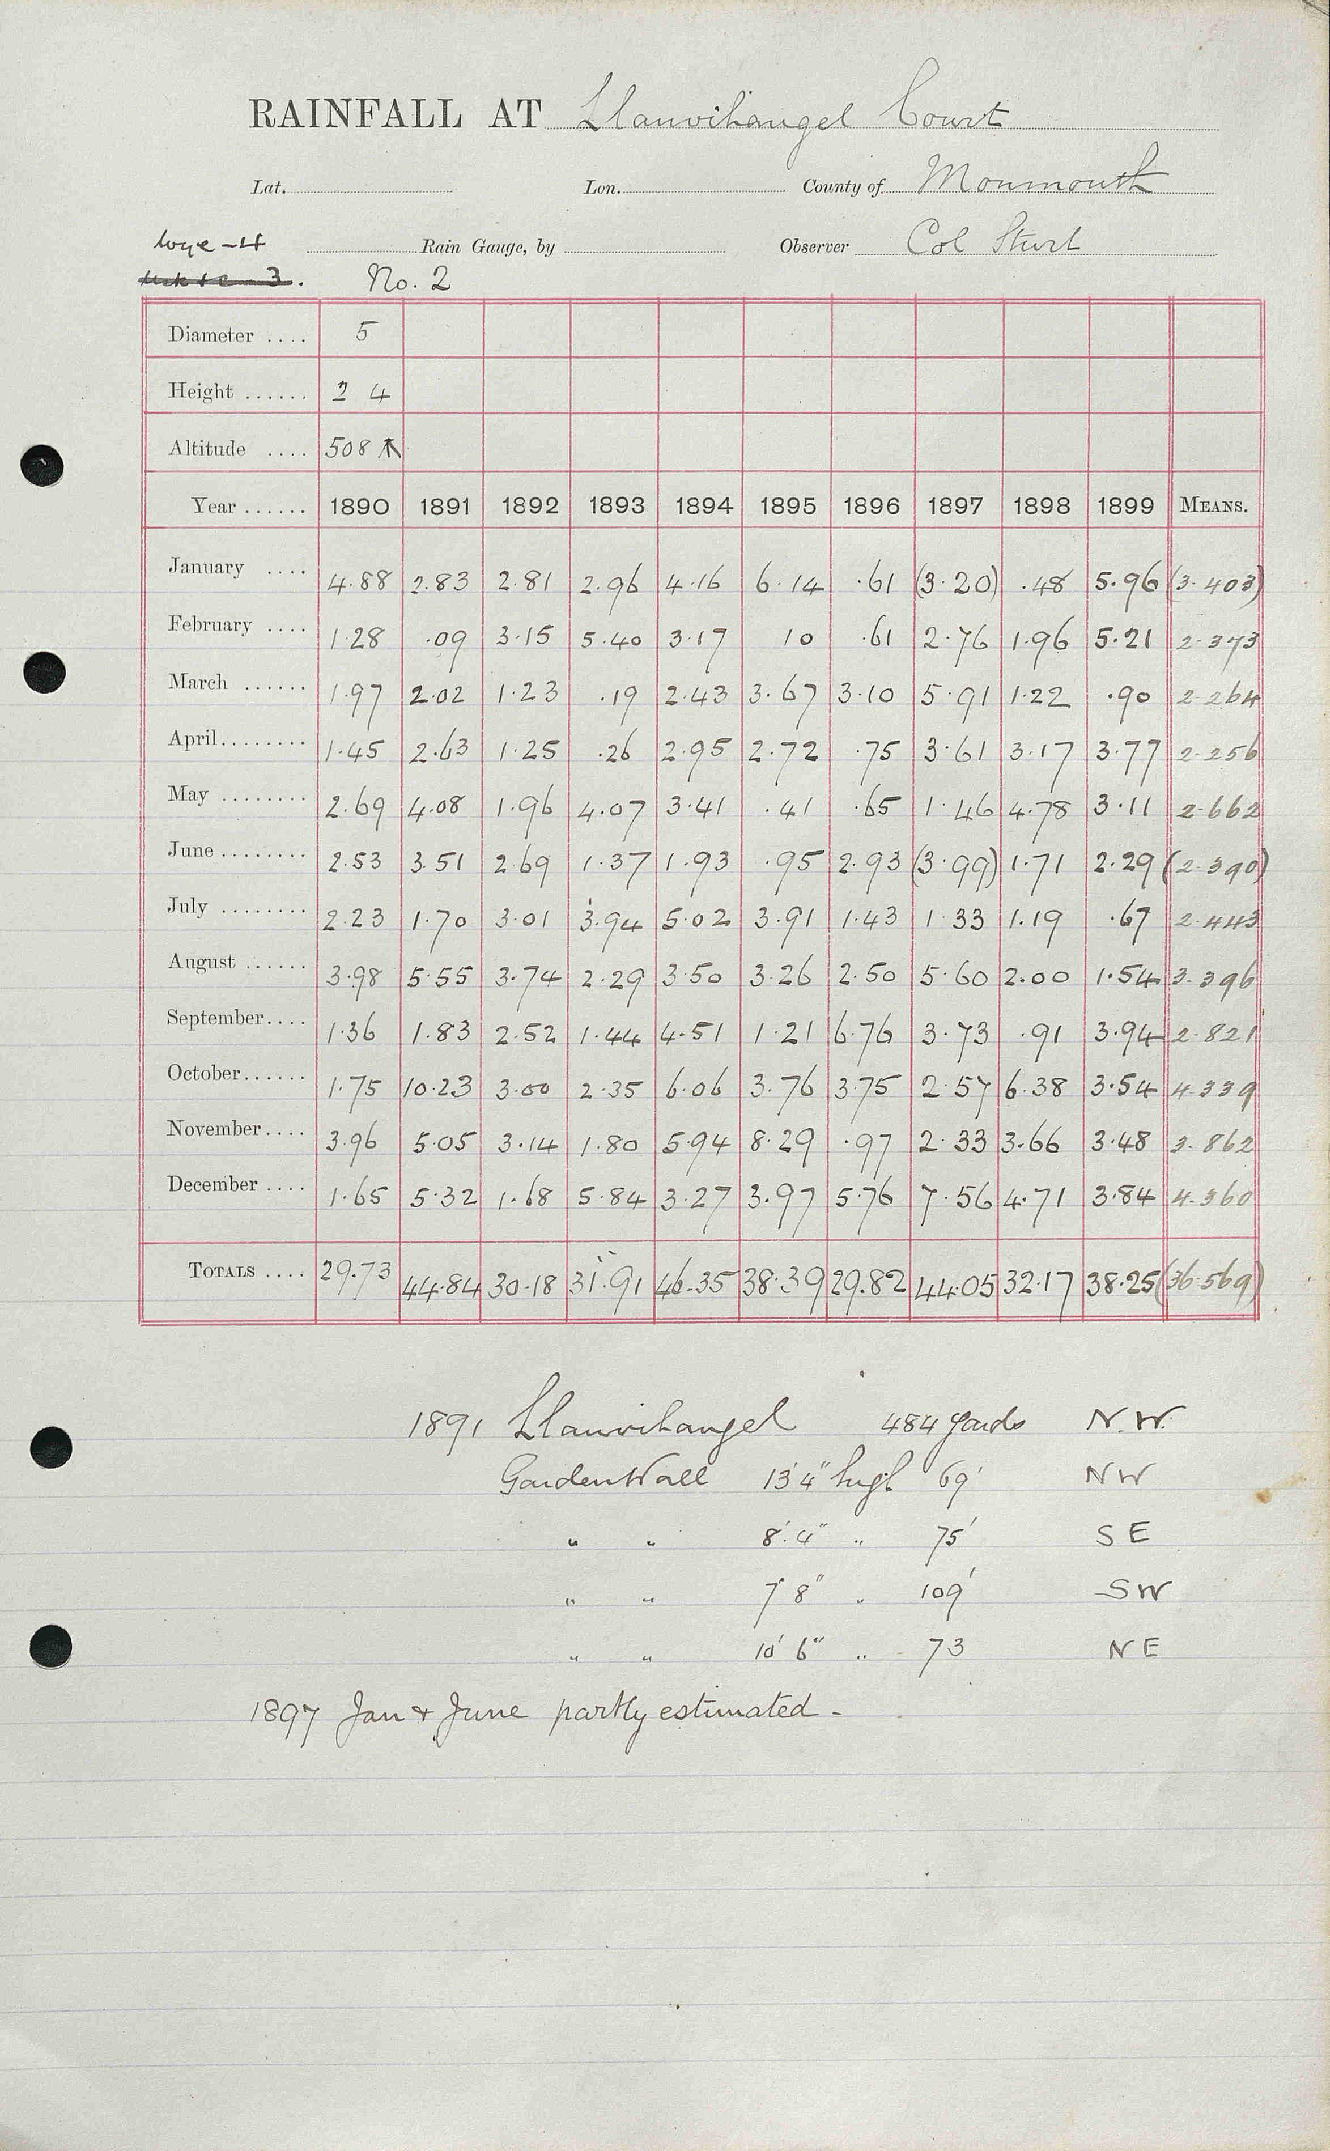 RAINFALL AT Llanvihangel Court
Lat. Lon. County of Monmouth
Wye - 4 Rain Gauge, by Observer Col Sturt
3. No. 2
Diameter .... 5
Height ...... 2 4
Altitude .... 508
Year ...... 1890 1891 1892 1893 1894 1895 1896 1897 1898 1899 MEANS.
January .... 4.88 2.83 2.81 2.96 4.16 6.14 .61 (3.20) .48 5.96 (3.403)
February .... 1.28 .09 3.15 5.40 3.17 10 .61 2.76 1.96 5.21 2.373
March ...... 1.97 2.02 1.23 .19 2.43 3.67 3.10 5.91 1.22 .90 2.264
April........ 1.45 2.63 1.25 .26 2.95 2.72 .75 3.61 3.17 3.77 2.256
May ........ 2.69 4.08 1.96 4.07 3.41 .41 .65 1.46 4.78 3.11 2.662
June ........ 2.53 3.51 2.69 1.37 1.93 .95 2.93 (3.99) 1.71 2.29 (2.390)
July ........ 2.23 1.70 3.01 3.94 5.02 3.91 1.43 1.33 1.19 .67 2.443
August ...... 3.98 5.55 3.74 2.29 3.50 3.26 2.50 5.60 2.00 1.54 3.396
September.... 1.36 1.83 2.52 1.44 4.51 1.21 6.76 3.73 .91 3.94 2.821
October...... 1.75 10.23 3.00 2.35 6.06 3.76 3.75 2.57 6.38 3.54 4.339
November.... 3.96 5.05 3.14 1.80 5.94 8.29 .97 2.33 3.66 3.48 3.862
December .... 1.65 5.32 1.68 5.84 3.27 3.97 5.76 7.56 4.71 3.84 4.360
TOTALS .... 29.73 44.84 30.18 31.91 46.35 38.39 29.82 44.05 32.17 38.25 (36.569)
1891 Llanvihangel 484 yards N.W
Garden Wall 13'4" high 69' NW
" " 8'.4" " 75' SE
" " 7' 8" " 109' SW
" " 10' 6" " 73 NE
1897 Jan + June partly estimated -